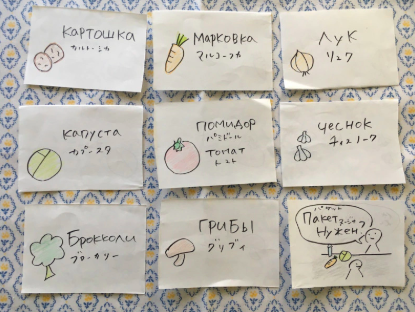 картошка
カルトーシカ
Марковка
マルコーフカ
Лук
リュク
капуста
カプースタ
помидор
パミドール
томат
トマト
чеснок
チィスノーク
Брокколи
ブローカリー
ГРИБЫ
グリブィ
パケット
Пакет
Нужен